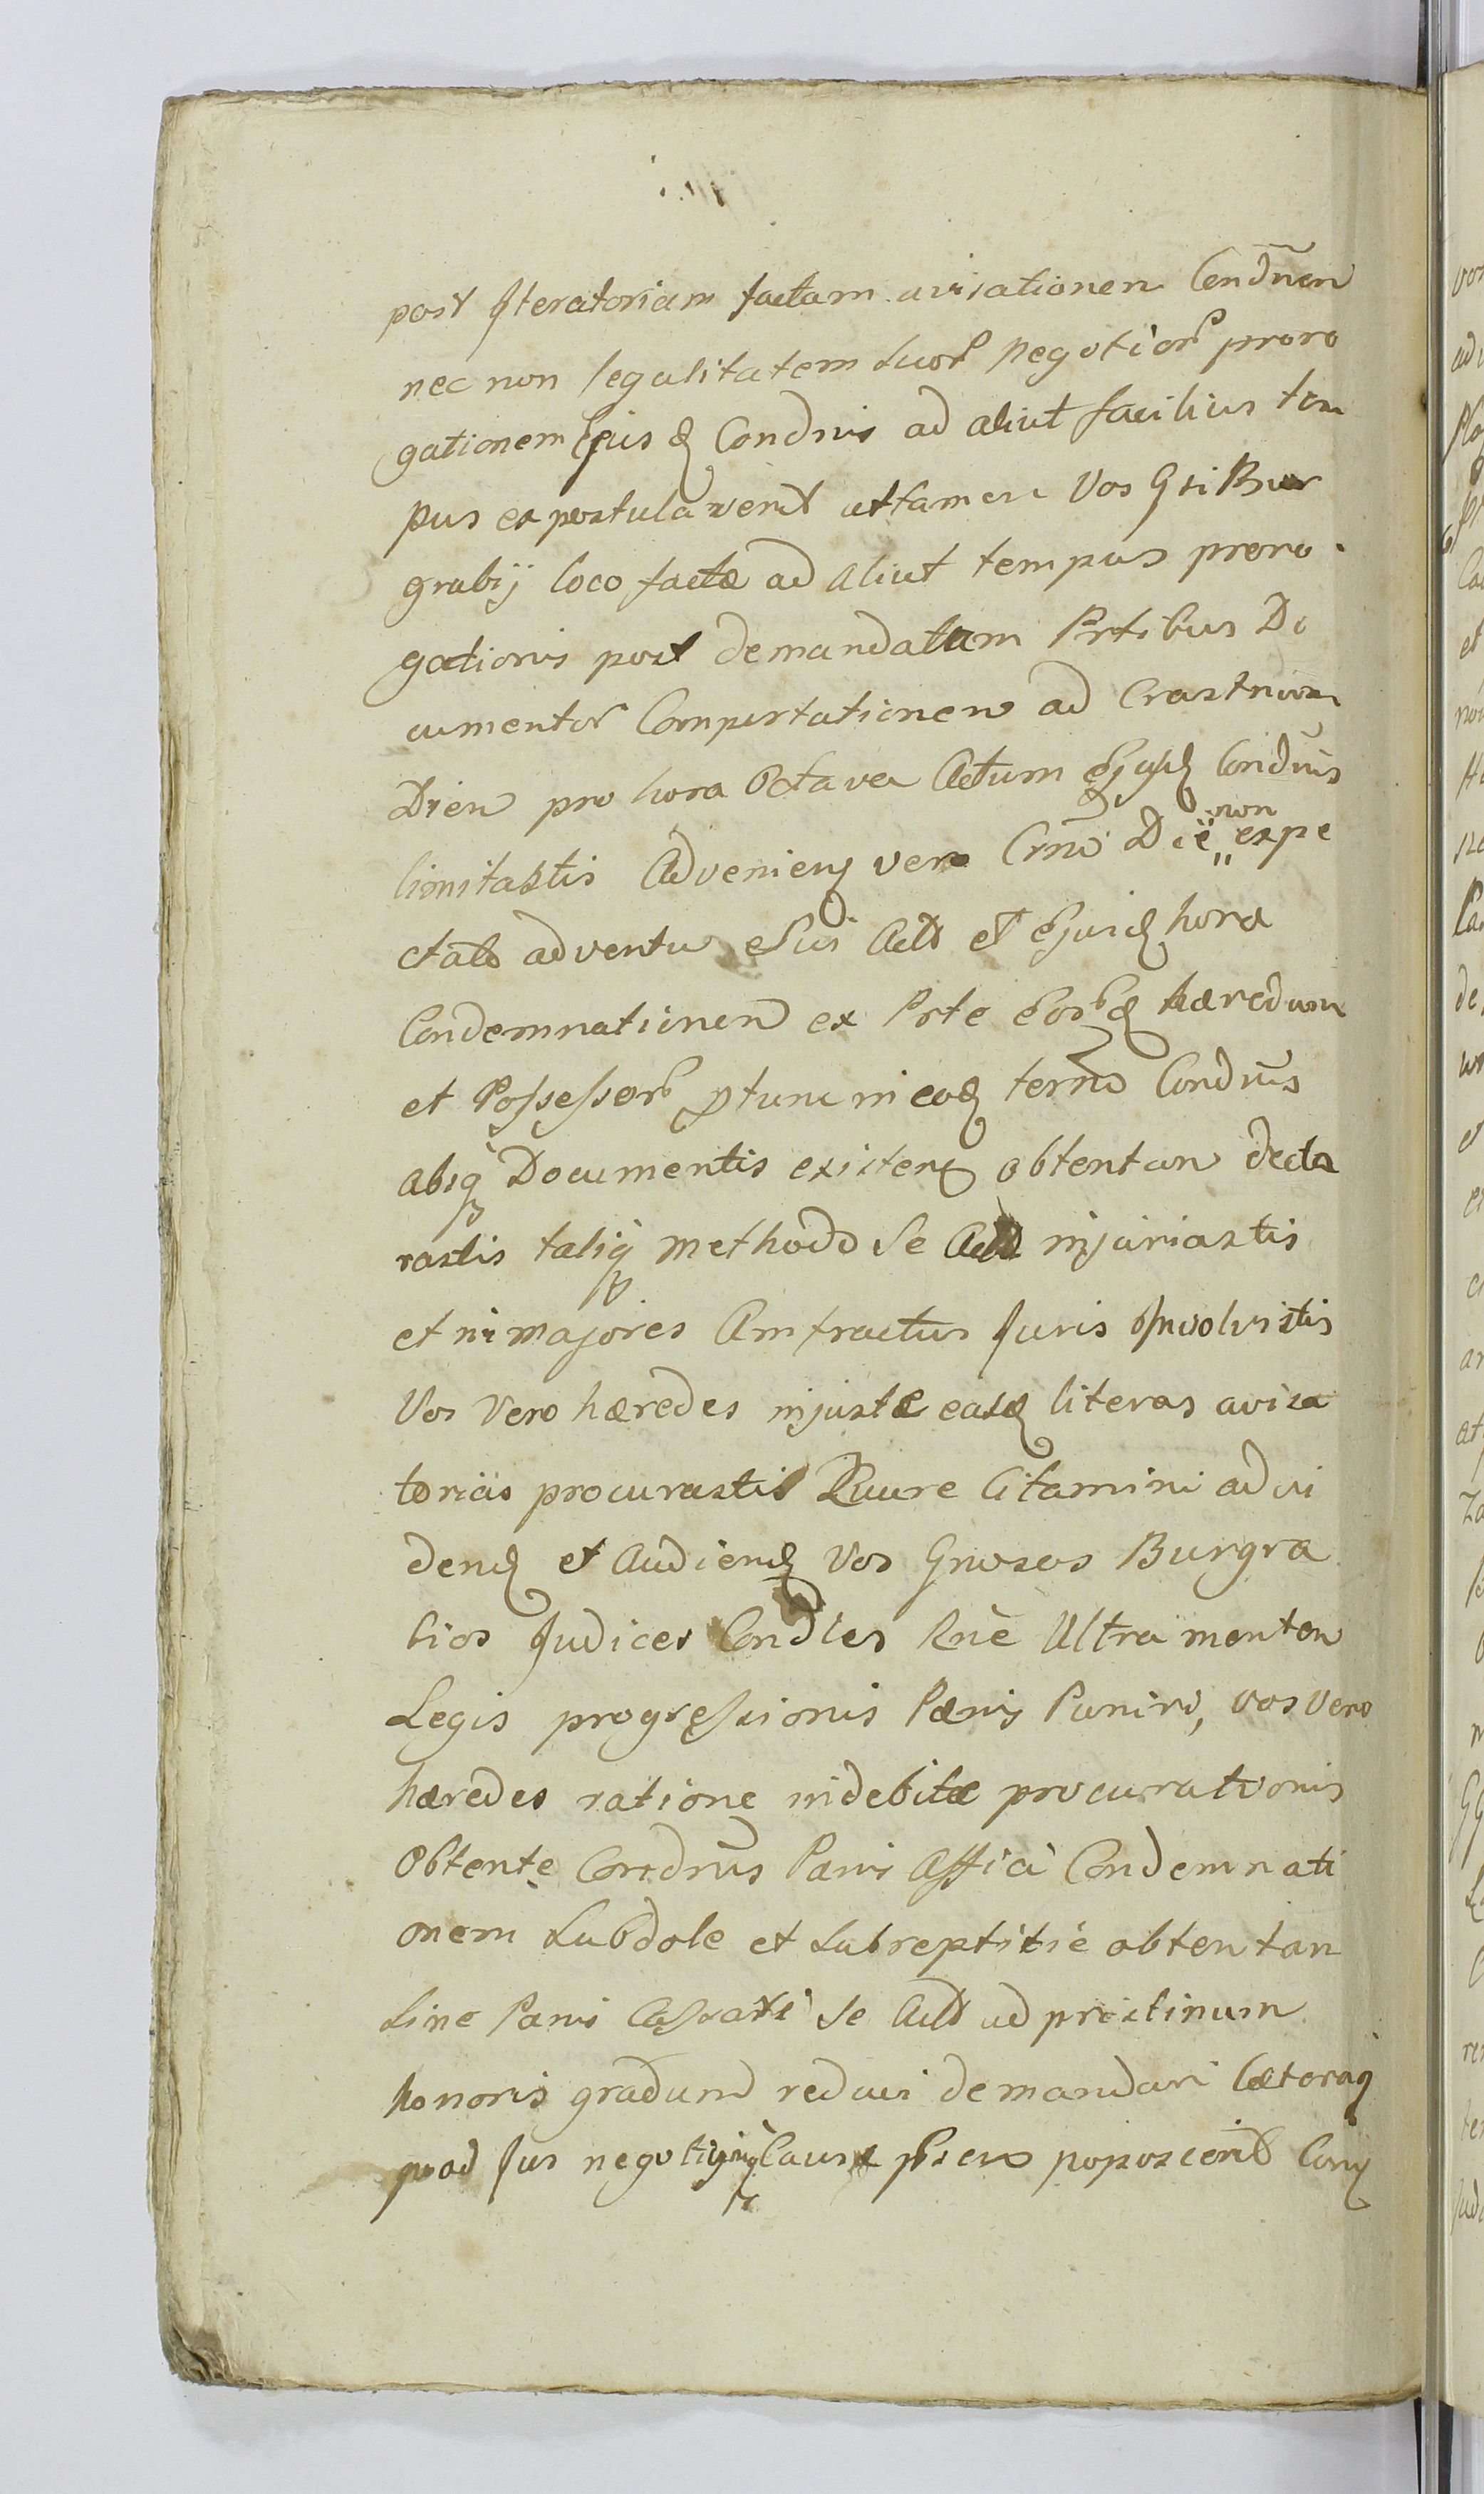 post Iteratoriam factam avisationem Condnem
nec non legalitatem suor negotior proro
gationem Ejusd Condnis ad aliut facilius tem
pus expostulaverit attamen Vos Gsi Bur
grabij loco factæ ad aliut tempus proro
gationis post demandatam Prtibus Do
cumentor Comportationem ad Crastnum
Diem pro hora Octava Actum Ejusd Condnis
limitastis Advenien vero Crno Die non expe
ctato adventu ejus Actt et Ejusd hora
Condemnationem ex Prte Eord hæredum
et Possessor ptunc in eod termo Condnis
absq Documentis existen obtentam decla
rastis taliq methodo se Actt injuriastis
et in majores Amfractus Juris Involvistis
Vos vero hæredes injuste easd literas aviza
torias procurastis Quare Citamini ad vi
dend et Audiend Vos Gnosos Burgra
bios Judices Condles Rne Ultra mentem
Legis progressionis Pænis Puniri, vos vero
hæredes ratione indebitæ procurationis
Obtente Condnis Pænis Affici Condemnati
onem subdole et subreptitie obtentam
sine Panis Cassari se Actt ad pristinum
honoris gradum reduci demandari Cæteraq
quad Jus negotijq Causæ psens poposcerit Conj